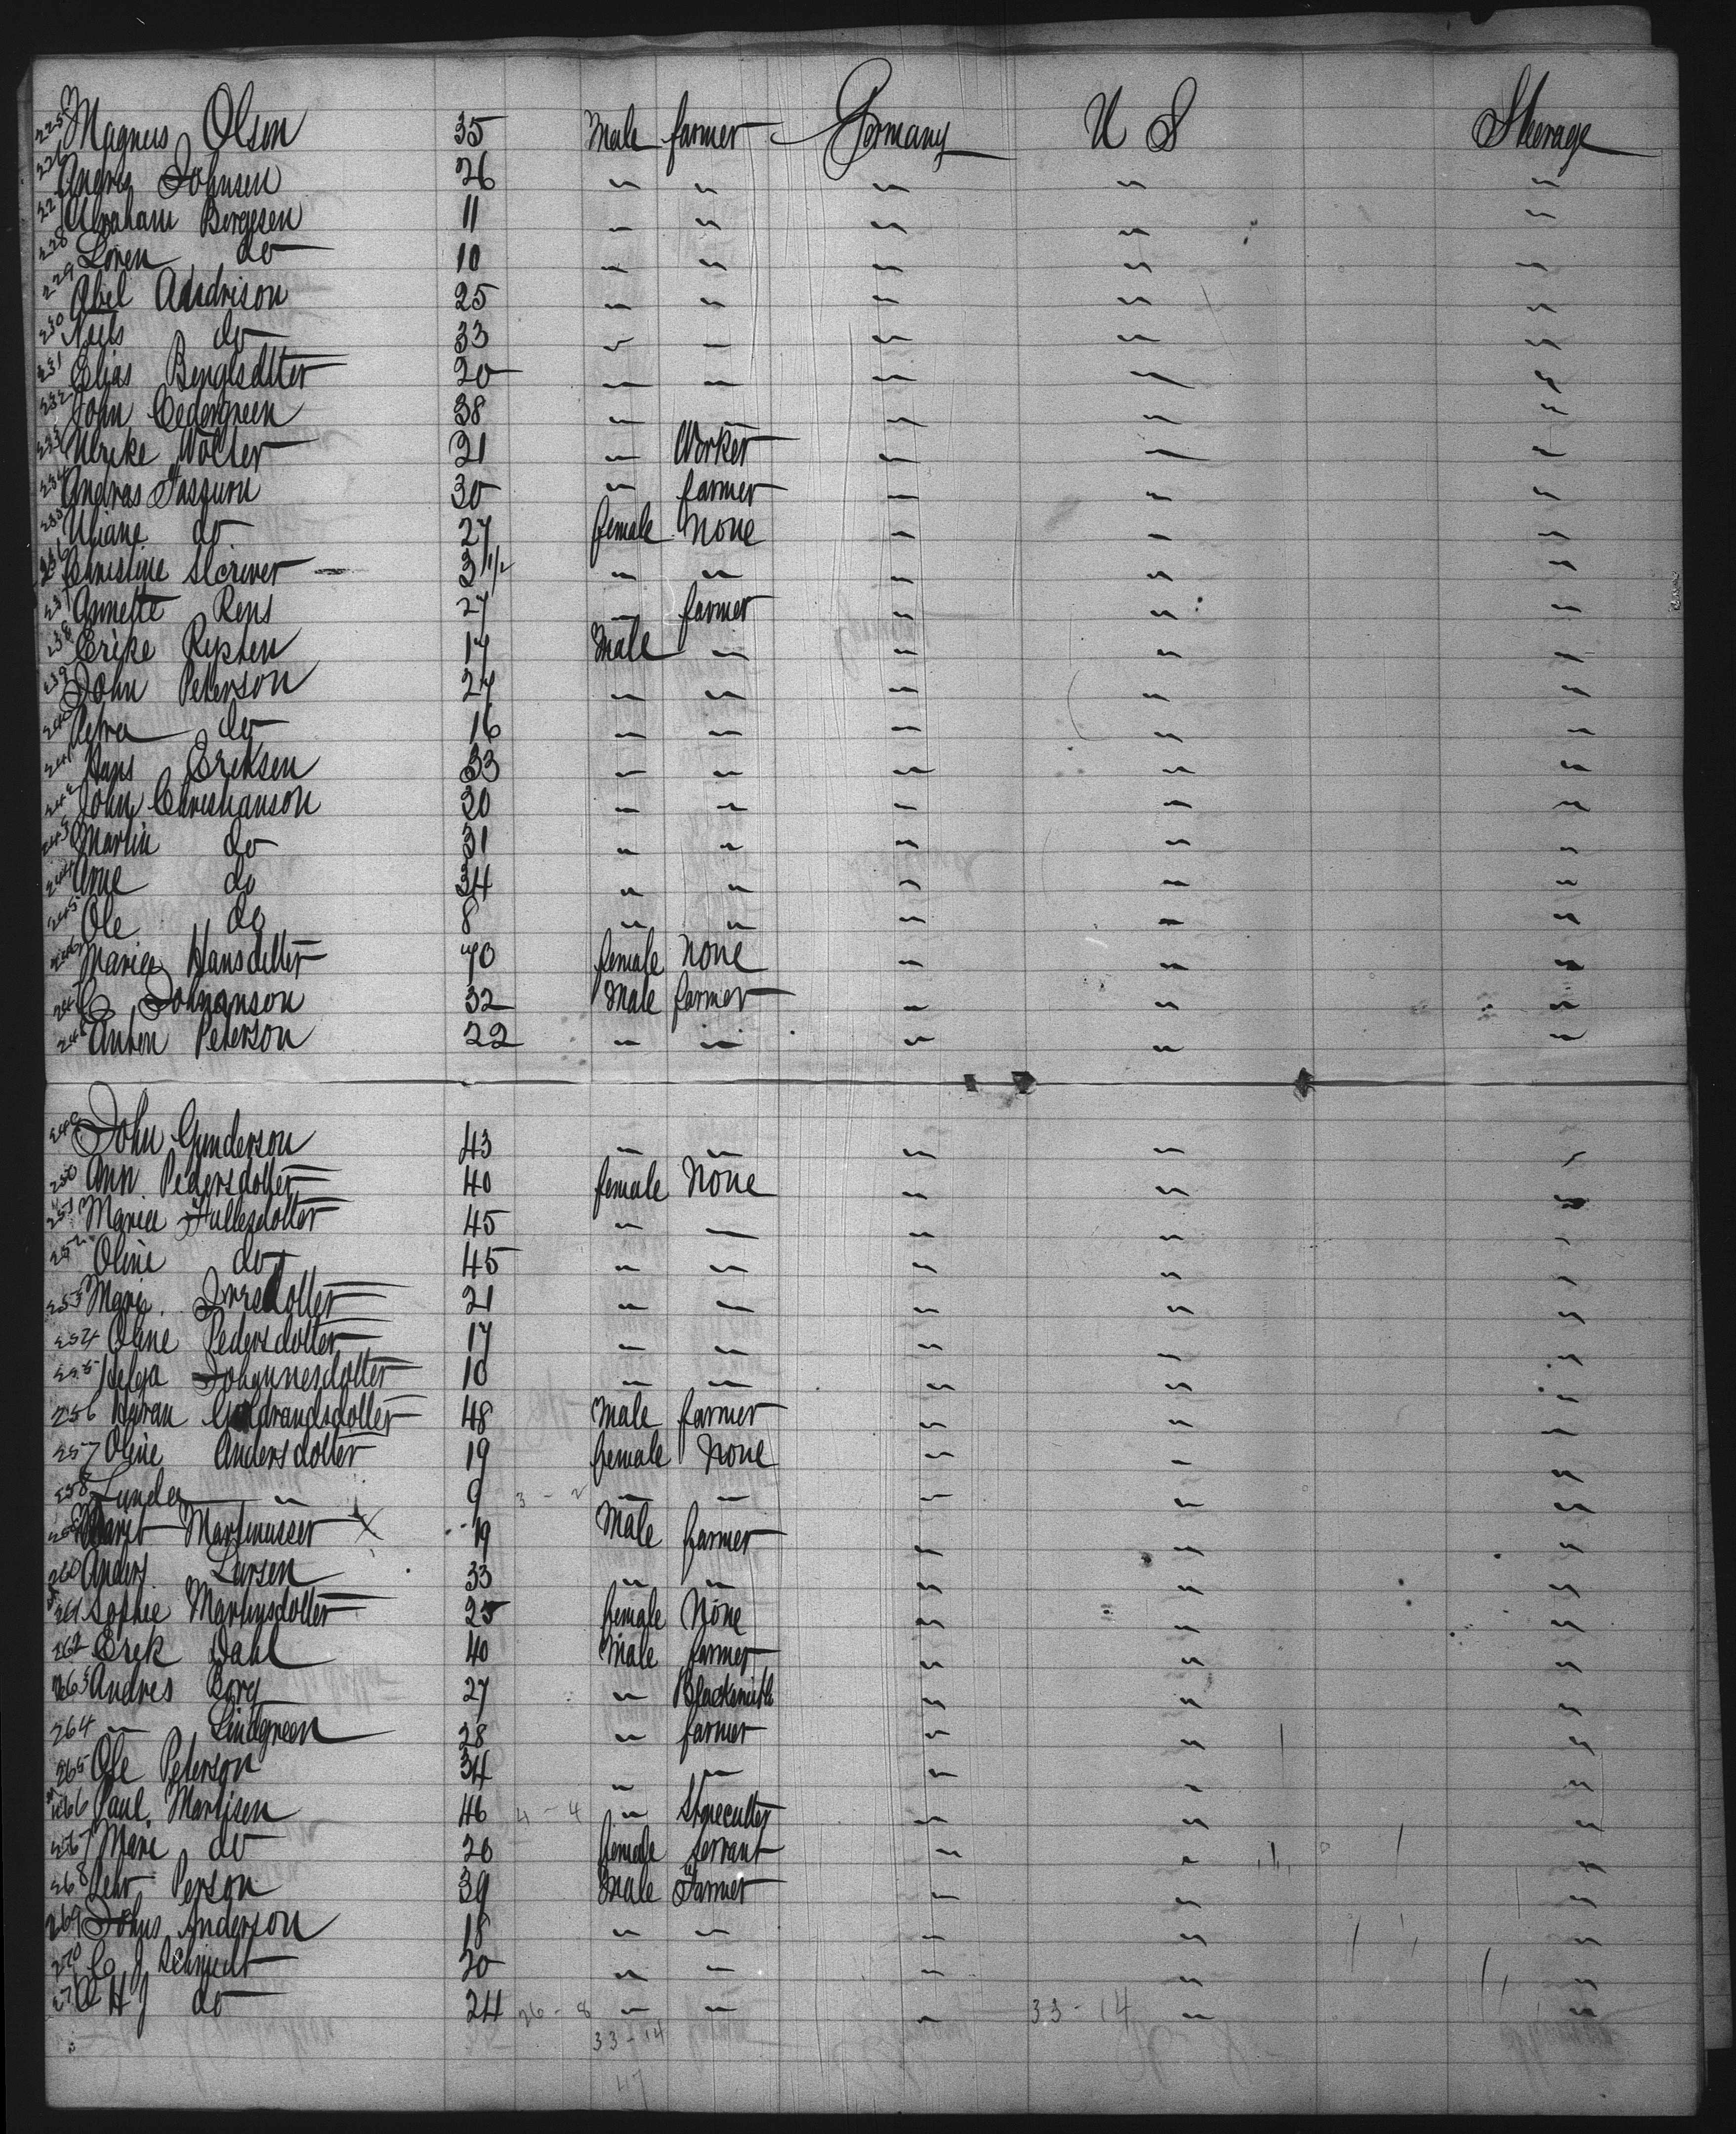 225 Magnus Olsen 35 Male farmer Germany U S Steerage
226 Andres Johnsen 26 " " " " "
227 Abraham Borgesen 11 " " " " "
228 Loren do 10 " " " " "
229 Abel 25 " " " " "
230 Niels do 33 " " " " "
231 Elias 20 " " " " "
232 John Cedergreen 38 " " " " "
233 Ulrike Wolter 21 " Worker " " "
234 Andras 30 " farmer " " "
235 do 27 female None " " "
236 Christine Scriver 3 1/2 " " " " "
237 Annette Rens 27 " farmer " " "
238 Erike 17 Male " " " "
239 John Peterson 27 " " " " "
240 Petra do 16 " " " " "
241 Hans Eriksen 33 " " " " "
242 John Christianson 20 " " " " "
243 Martin do 31 " " " " "
244 Arne do 34 " " " " "
245 Ole do 8 " " " " "
246 Maria Hansdotter 70 female None " " "
247 C Johnanson 32 Male farmer " " "
248 Anten Peterson 22 " " " " "
249 John Gunderson 43 " " " " "
250 Ann Pedersdotter 40 female None " " "
251 Maria 45 " " " " "
252 Oline do 45 " " " " "
253 Marie 21 " " " " "
254 Oline Pedersdotter 17 " " " " "
255 Helga Johannesdotter 10 " " " " "
256 Guldrandsdotter 48 Male farmer " " "
257 Oline Andersdotter 19 female None " " "
258 " 9 3 - 2 " " " " "
259 Marit Martinusser X 19 Male farmer " " "
260 Anders Larsen 33 " " " " "
261 Sophie Martinsdotter 25 female None " " "
262 Erek Dahl 40 Male farmer " " "
263 Andres Borg 27 " Blacksmith " " "
264 " Lindgreen 28 " farmer " " "
265 Ole Peterson 34 " " " " "
266 Paul Martisen 46 4 - 4 " Stonecutter " " "
267 Mari do 20 female Servant " " "
268 Pehr Person 39 Male Farmer " " "
269 Johns Anderson 18 " " " " "
270 C J Schmidt 20 " " " " "
271 H J do 24 26 - 8 " " " 33 - 14 " "
33 - 14
47